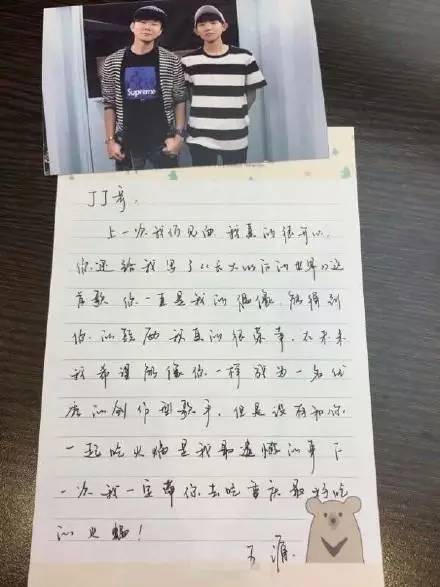 Supreme
JJ哥，
上一次我们见面 我真的很开心，
你还给我写了《长大以后的世界》这
首歌 你一直是我的偶像，能得到
你的鼓励 我真的很荣幸，在未来
我希望能像你一样 成为一名优
秀的创作型歌手，但是没有和你
一起吃火锅是我最遗憾的事 下
一次我一定带你去吃重庆最好吃
的火锅！
王源